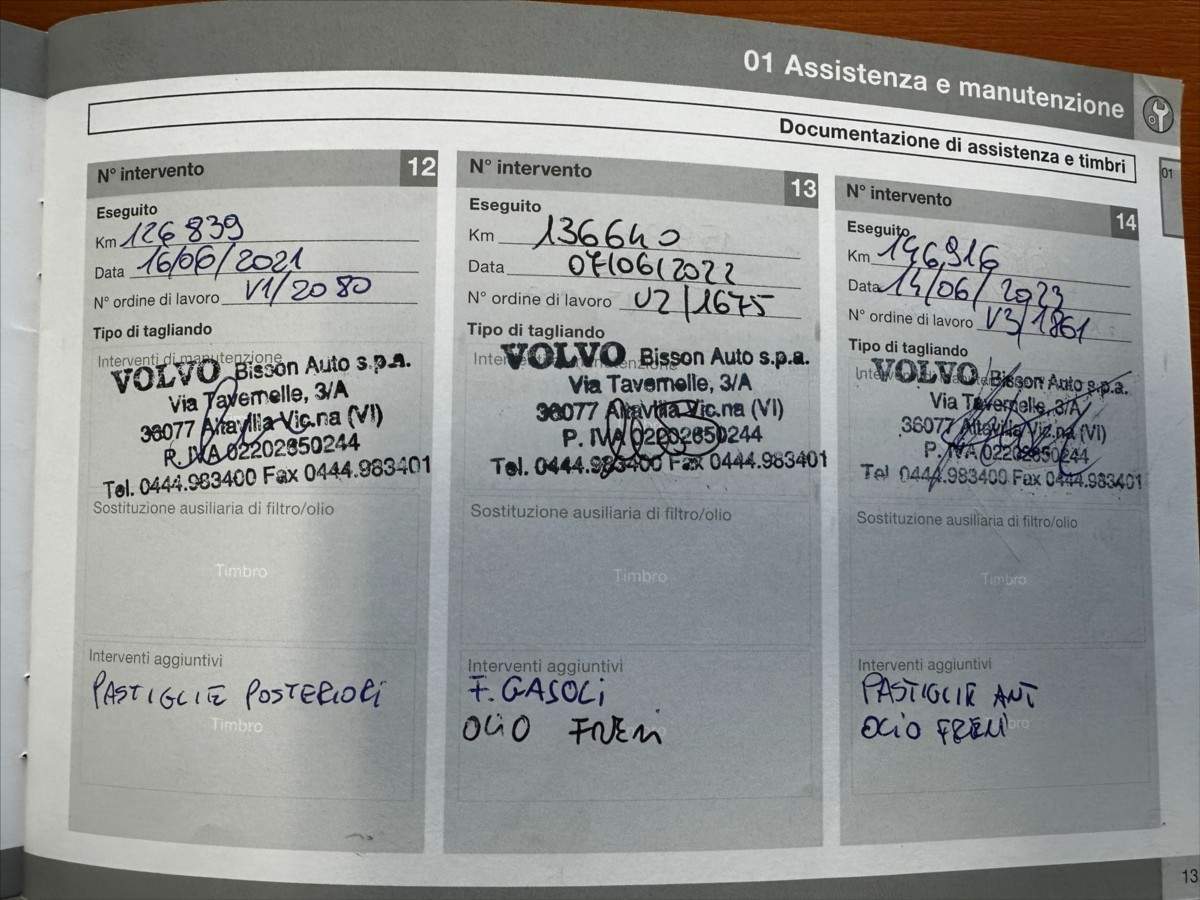 01 Assistenza e manutenzione
Documentazione di assistenza e timbri
01
N° intervento 12
Eseguito
Km 126839
Data 16/06/2021
N° ordine di lavoro V1/2080
Tipo di tagliando
Interventi di manutenzione
VOLVO Bisson Auto s.p.a.
Via Tavernelle, 3/A
36077 Altavilla Vic.na (VI)
P. IVA 02202650244
Tel. 0444.983400 Fax 0444.983401
Sostituzione ausiliaria di filtro/olio
Timbro
Interventi aggiuntivi
PASTIGLIE POSTERIORI
Timbro
N° intervento 13
Eseguito
Km 136640
Data 07/06/2022
N° ordine di lavoro V2/1675
Tipo di tagliando
VOLVO Bisson Auto s.p.a.
Via Tavernelle, 3/A
36077 Altavilla Vic.na (VI)
P. IVA 02202650244
Tel. 0444.983400 Fax 0444.983401
Sostituzione ausiliaria di filtro/olio
Timbro
Interventi aggiuntivi
F. GASOLi
OLIO FRENi
N° intervento 14
Eseguito
Km 146916
Data 14/06/2023
N° ordine di lavoro V3/1861
Tipo di tagliando
VOLVO Bisson Auto s.p.a.
Via Tavernelle, 3/A
36077 Altavilla Vic.na (VI)
P. IVA 02202650244
Tel 0444.983400 Fax 0444.983401
Sostituzione ausiliaria di filtro/olio
Timbro
Interventi aggiuntivi
PASTIGLIE ANT
OLIO FRENI
13